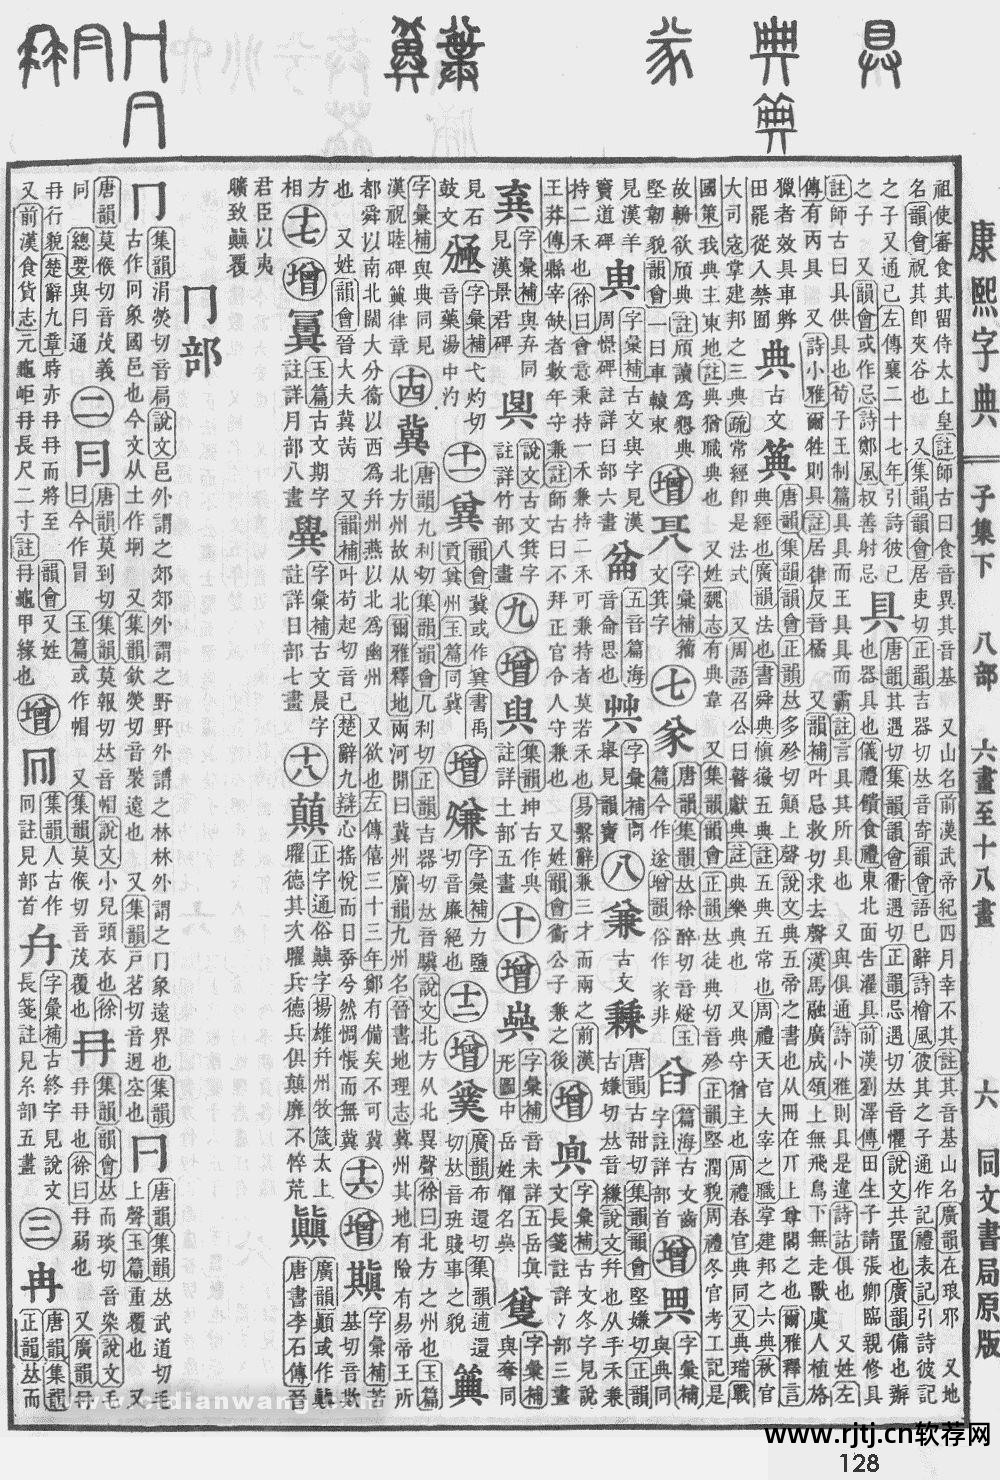 康熙字典　子集下　八部　六畫至十八畫　六　同文書局原版
祖使審食其留侍太上皇註師古曰食音異其音基　又山名前漢武帝紀四月幸不其註其音基山名廣韻在琅邪　又地
名韻會祝其卽夾谷也　又集韻韻會居吏切正韻吉器切𠀤音寄韻會語已辭詩檜風彼其之子通作記禮表記引詩彼記
之子又通己左傳襄二十七年引詩彼己
之子　又韻會或作忌詩鄭風叔善射忌
具　唐韻其遇切集韻韻會衢遇切正韻忌遇切𠀤音懼說文共置也廣韻備也辦
也器具也儀禮饋食禮東北面告濯具前漢劉澤傳田生子請張卿臨親修具
註師古曰具供具也荀子王制篇具具而王具具而霸註言具其所具也　又與俱通詩小雅則具是違詩詁俱也　又姓左
傳有丙具　又詩小雅爾牲則具註居律反音橘　又韻補叶忌救切求去聲漢馬融廣成頌上無飛鳥下無走獸虞人植旍
獵者效具車弊
田罷從入禁囿
典　古文　䈇　唐韻集韻韻會正韻𠀤多殄切顚上聲說文典五帝之書也从冊在丌上尊閣之也爾雅釋言
典經也廣韻法也書舜典愼徽五典註五典五常也周禮天官大宰之職掌建邦之六典秋官
大司宼掌建邦之三典疏常經卽是法式　又周語召公曰瞽獻典註典樂典也　又典守猶主也周禮春官典同　又典瑞戰
國策我典主東地註典猶職典也　又姓魏志有典韋　又集韻韻會正韻𠀤徒典切音殄正韻堅潤貌周禮冬官考工記是
故輈欲頎典註頎讀爲懇典
堅韌貌韻會一曰車轅束
增　字彙補籀文箕字
七　㒸　唐韻集韻𠀤徐醉切音燧玉篇今作遂增韻俗作㒸非
篇海古文齒字註詳部首
增　字彙補與典同
見漢羊竇道碑
字彙補古文與字見漢周憬碑註詳臼部六畫
五音篇海音侖思也
字彙補同𦾔見韻寶
八　兼　古文　秝　唐韻古甜切集韻韻會堅嫌切正韻古嫌切𠀤音縑說文幷也从手禾兼
持二禾也徐曰會意秉持一禾兼持二禾可兼持者莫若禾也易繫辭兼三才而兩之前漢
王莽傳縣宰缺者數年守兼註師古曰不拜正官令人守兼也　又姓韻會衞公子兼之後
增　字彙補古文冬字見說文長箋註詳冫部三畫
字彙補與弃同見漢景君碑
說文古文箕字註詳竹部八畫
九　增　與　集韻坤古作與註詳土部五畫
十　增　字彙補音未詳五岳眞形圖中岳姓惲名𠔻
字彙補與奪同
見石鼓文
字彙補弋灼切音藥湯中灼
十一　韻會冀或作兾書禹貢兾州玉篇同冀
增　字彙補力鹽切音廉絕也
十二　增　廣韻布還切集韻逋還切𠀤音班賤事之貌
字彙補與典同見漢祝睦碑籅律章
十四　冀　唐韻九利切集韻韻會几利切正韻吉器切𠀤音驥說文北方州也玉篇
北方州故从北爾雅釋地兩河閒曰冀州廣韻九州名晉書地理志冀州其地有險有易帝王所
都舜以南北闊大分衞以西爲幷州燕以北爲幽州　又欲也左傳僖三十三年鄭有備矣不可冀
也　又姓韻會晉大夫冀芮　又韻補叶苟起切音已楚辭九辯心搖悅而日㚏兮然惆悵而無冀
十六　增　字彙補苦基切音欺方相
十七　增　玉篇古文期字註詳月部八畫
字彙補古文晨字註詳日部七畫
十八　顚　正字通俗䫜字揚雄幷州牧箴太上曜德其次曜兵德兵俱顚靡不悴荒
廣韻顚或作顛唐書李石傳晉
君臣以夷曠致顚覆
冂部
冂　集韻涓熒切音扃說文邑外謂之郊郊外謂之野野外謂之林林外謂之冂象遠界也集韻
古作冋象國邑也今文从土作坰　又集韻欽熒切音褧遠也　又集韻戶茗切音迥空也
唐韻集韻𠀤武道切毛上聲玉篇重覆也　又
唐韻莫候切音茂義同　總要與冃通
二　冃　唐韻莫到切集韻莫報切𠀤音帽說文小兒頭衣也徐曰今作冒　玉篇或作帽　又集韻莫候切音茂覆也
冄　集韻韻會𠀤而琰切音染說文毛冄冄也徐曰冄弱也　又廣韻冄
冄行貌楚辭九章時亦冄冄而將至　韻會又姓
又前漢食貨志元龜岠冄長尺二寸註冄龜甲緣也
增　集韻人古作冋註見部首
字彙補古終字見說文長箋註見糸部五畫
三　冉　唐韻集韻正韻𠀤而
www.cidianwang.com
www.rjtj.cn软荐网
128